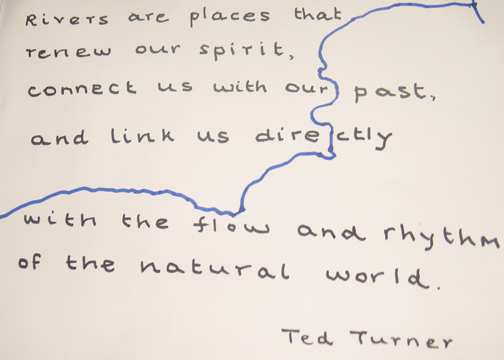 Rivers are places that
renew our spirit,
connect us with our past,
and link us directly
with the flow and rhythm
of the natural world.
Ted Turner